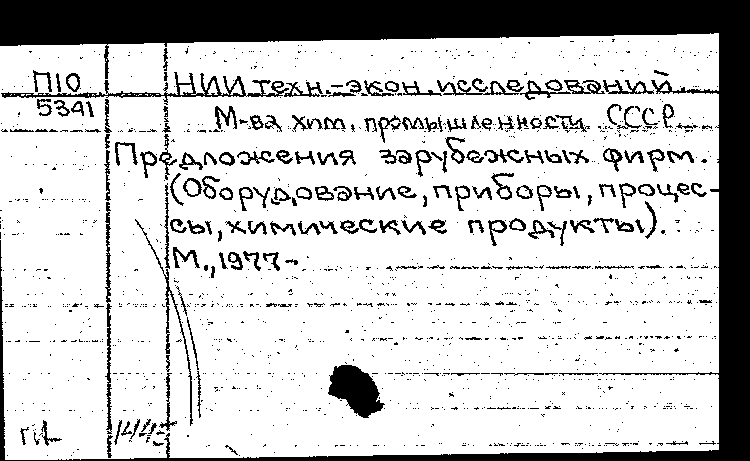 П10
5341
НИИ техн.-экон. исследований
М-ва хим. промышленности СССР
Предложения зарубежных фирм.
(Оборудование, приборы, процес-
сы, химические продукты).
М., 1977-
1445